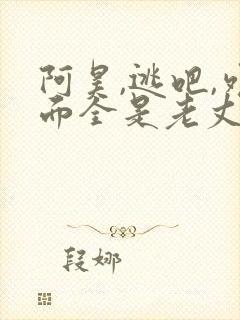 阿昊,逃吧,
而全是老丈
段娜